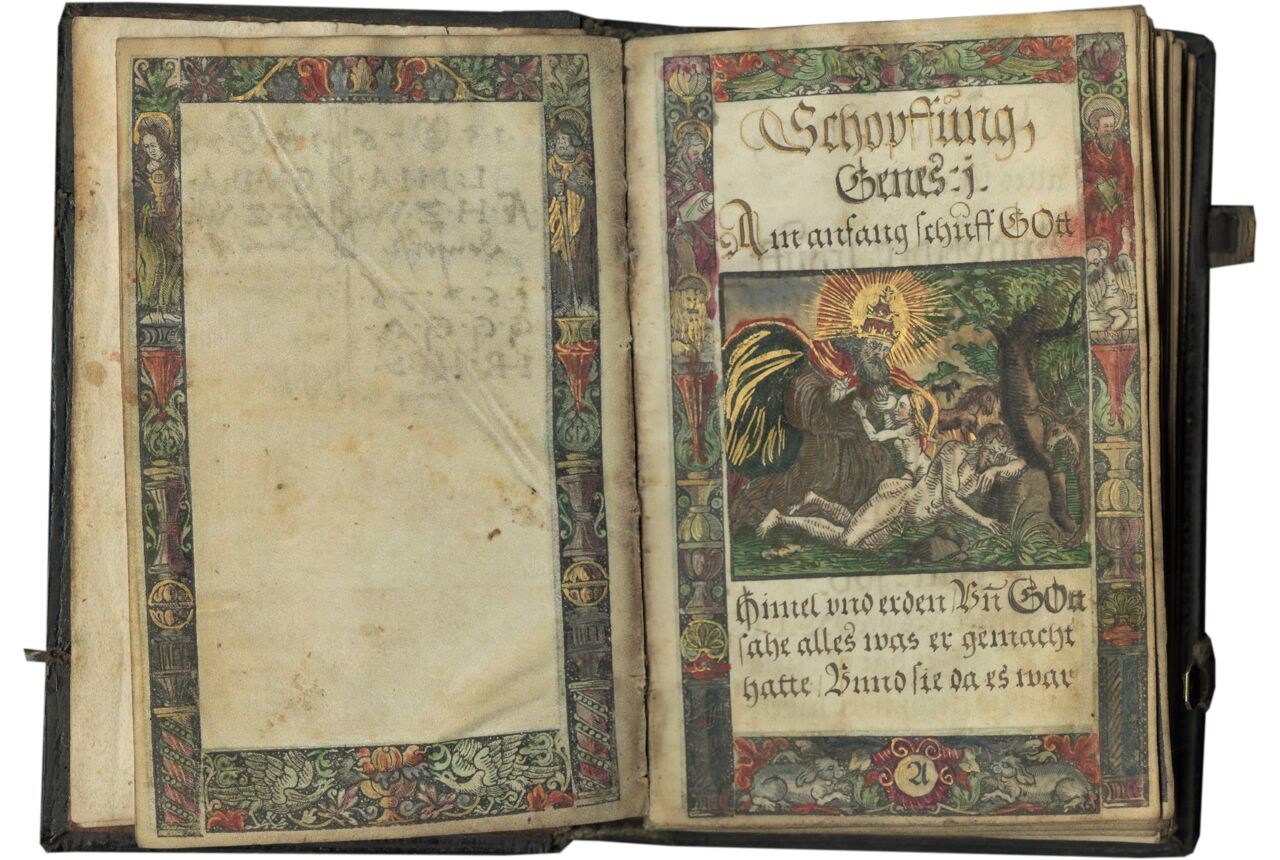 Schopffung,
Genes: j.
Am anfang schuff GOtt
Himel vnd erden / Vn̄ GOtt
sahe alles was er gemacht
hatte / Vnnd sie da es war
A